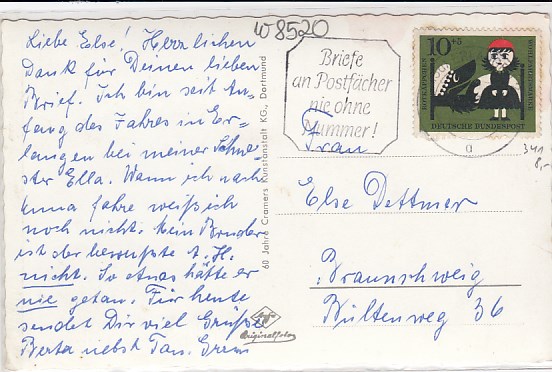 W 8520
Liebe Else! Herzlichen
Dank für Deinen lieben
Brief. Ich bin seit An-
fang des Jahres in Er-
langen bei meiner Schwe-
ster Ella. Wann ich nach
fahre weiß ich
noch nicht. Mein Bruder
ist der bewußte A. H.
nicht. So etwas hätte er
nie getan. Für heute
sendet Dir viel Grüße
Berta nebst Fam.
60 Jahre Cramers Kunstanstalt KG., Dortmund
Originalfoto
Briefe
an Postfächer
nie ohne
Nummer!
10+5
ROTKÄPPCHEN
WOHLFAHRTSMARKE
DEUTSCHE BUNDESPOST
a
341
8,-
Frau
Else Dettmer
Braunschweig
Bültenweg 36